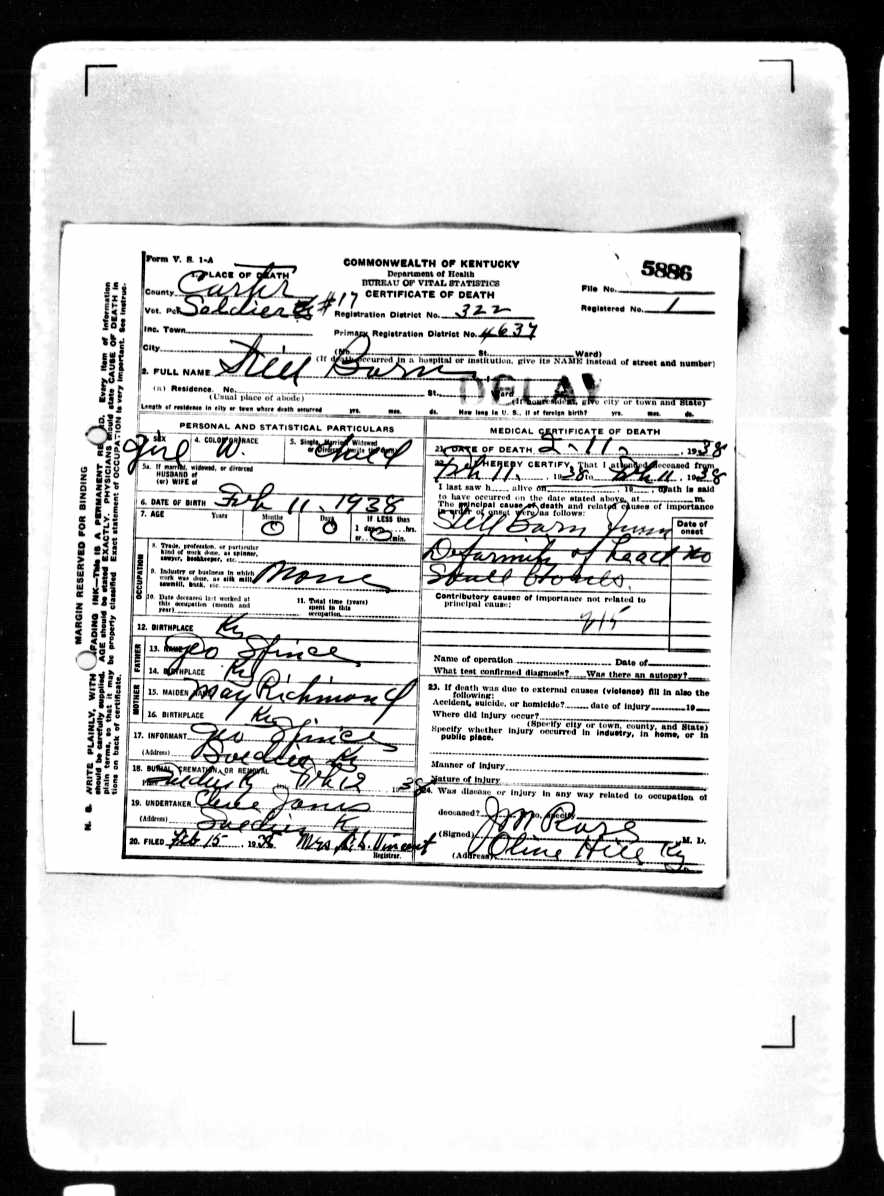 Form V. S. 1-A
COMMONWEALTH OF KENTUCKY
Department of Health
BUREAU OF VITAL STATISTICS
CERTIFICATE OF DEATH
5886
File No.
Registered No. 1
1. PLACE OF DEATH
County Carter
Vot. Pct. Soldier #17
Registration District No. 322
Inc. Town
Primary Registration District No. 4637
City
(No. St. Ward)
(If death occurred in a hospital or institution, give its NAME instead of street and number)
2. FULL NAME Still Born
(a) Residence. No. St., Ward
(Usual place of abode) (If nonresident, give city or town and State)
Length of residence in city or town where death occurred yrs. mos. ds. How long in U. S., if of foreign birth? yrs. mos. ds.
PERSONAL AND STATISTICAL PARTICULARS
3. SEX 4. COLOR OR RACE 5. Single, Married, Widowed
or Divorced (write the word)
girl W. Child
5a. If married, widowed, or divorced
HUSBAND of
(or) WIFE of
6. DATE OF BIRTH Feb 11 1938
7. AGE Years Months Days If LESS than
1 day, hrs.
or min.
0 0 0
OCCUPATION
8. Trade, profession, or particular
kind of work done, as spinner,
sawyer, bookkeeper, etc.
9. Industry or business in which
work was done, as silk mill,
sawmill, bank, etc.
None
10. Date deceased last worked at
this occupation (month and
year)
11. Total time (years)
spent in this
occupation
12. BIRTHPLACE Ky
FATHER
13. NAME Geo
14. BIRTHPLACE Ky
MOTHER
15. MAIDEN NAME May Richmond
16. BIRTHPLACE Ky
17. INFORMANT Geo
(Address) Soldier Ky
18. BURIAL, CREMATION, OR REMOVAL
Place Ky Feb 12 1938
19. UNDERTAKER Jones
(Address) Soldier Ky
20. FILED Feb 15 1938 Mrs Vincent
Registrar.
MEDICAL CERTIFICATE OF DEATH
21. DATE OF DEATH 2-11- , 1938
22. I HEREBY CERTIFY, That I attended deceased from
Feb 11, 1938 to Feb 11 1938
I last saw h alive on , 19 , death is said
to have occurred on the date stated above, at m.
The principal cause of death and related causes of importance
in order of onset were as follows:
Date of
onset
Still Born from
Deformity of head no
Skull
Contributory causes of importance not related to
principal cause:
215
Name of operation Date of
What test confirmed diagnosis? Was there an autopsy?
23. If death was due to external causes (violence) fill in also the
following:
Accident, suicide, or homicide? date of injury 19
Where did injury occur?
(Specify city or town, county, and State)
Specify whether injury occurred in industry, in home, or in
public place.
Manner of injury
Nature of injury
24. Was disease or injury in any way related to occupation of
deceased? If so, specify
(Signed) J M Rose M. D.
(Address) Olive Hill Ky
MARGIN RESERVED FOR BINDING
N. B. WRITE PLAINLY, WITH UNFADING INK—THIS IS A PERMANENT RECORD. Every item of information
should be carefully supplied. AGE should be stated EXACTLY. PHYSICIANS should state CAUSE OF DEATH in
plain terms, so that it may be properly classified. Exact statement of OCCUPATION is very important. See instruc-
tions on back of certificate.